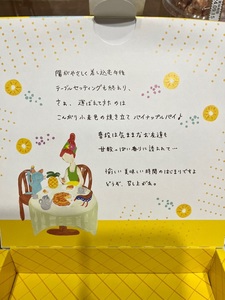 陽がやさしく差し込む午後
テーブルセッティングもおわり、
さぁ、運ばれてきたのは
こんがり小麦色の焼き立てパイナップルパイ♪
普段は気ままなお友達も
甘酸っぱい香りに誘われて…
愉しい美味しい時間のはじまりですよ
どうぞ、召し上がれ。